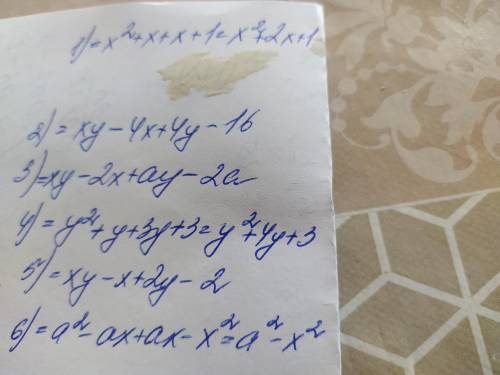 1) = x²+x+x+1 = x²+2x+1
2) = xy-4x+4y-16
3) = xy-2x+ay-2a
4) = y²+y+3y+3 = y²+4y+3
5) = xy-x+2y-2
6) = a²-ax+ax-x² = a²-x²